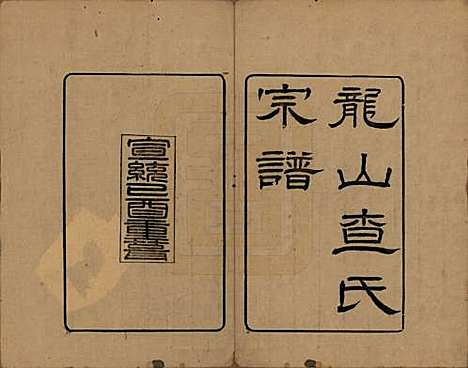 龍山查氏
宗譜
宣統己酉重葺